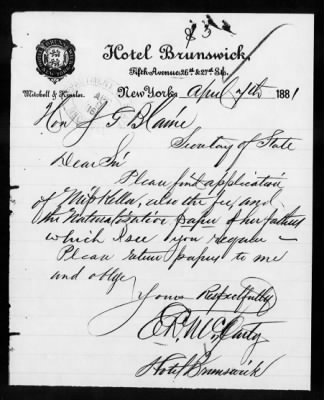 83
Hotel Brunswick,
Fifth Avenue, 26th & 27th Sts.
Mitchell & Kinzler.
New York, April 7th 1881
Hon J G Blaine
Secretary of State
Dear Sir
Please find application
of Miss Kella, also the fee, and
the Naturalization paper of her father
which I see you require –
Please return papers to me
and oblige
Yours Respectfully
E. R. McCarty
Hotel Brunswick